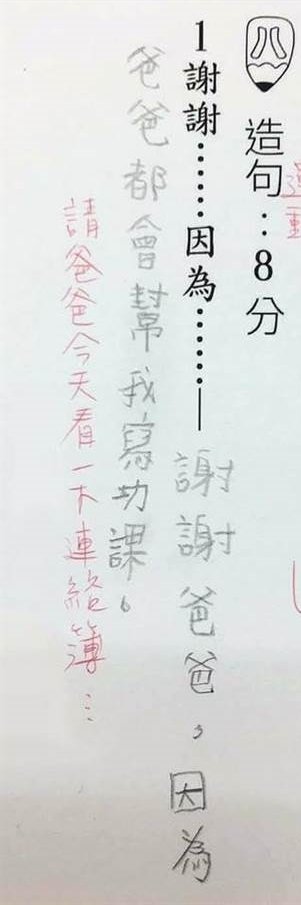 八 造句：8分
1 謝謝……因為……—謝謝爸爸，因為
爸爸都會幫我寫功課。
請爸爸今天看一下連絡簿…